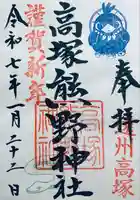 奉拝
州高塚
高塚熊野神社
謹賀新年
令和七年一月二十二日